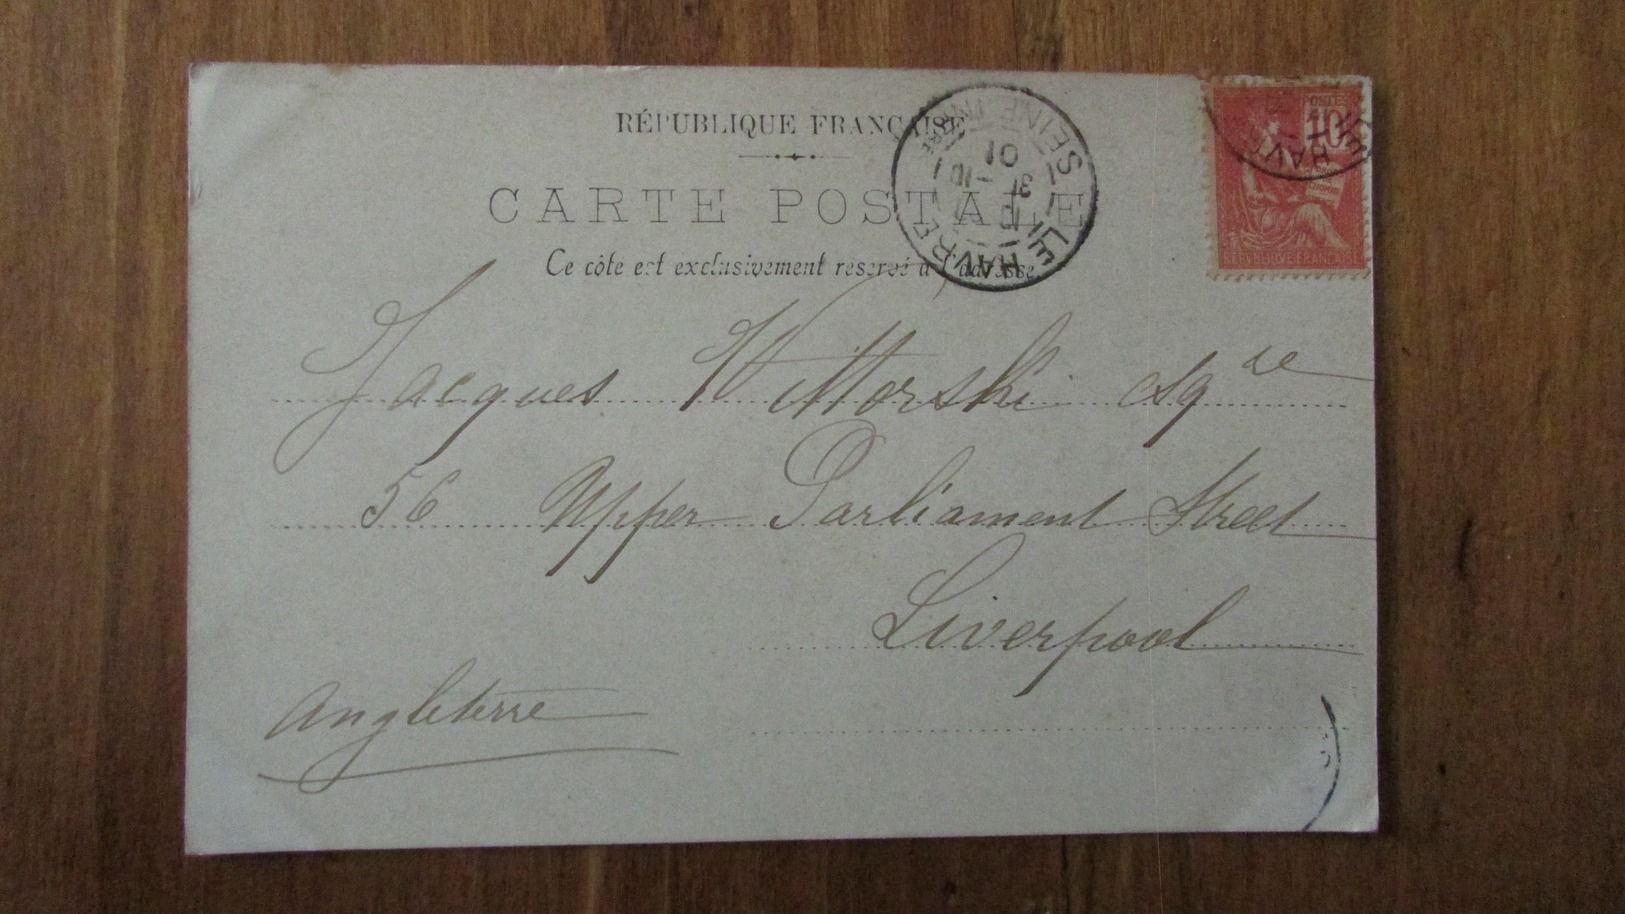 RÉPUBLIQUE FRANÇAISE
CARTE POSTALE
Ce côté est exclusivement réservé à l'adresse
LE HAVRE SEINE INFRE
31 -10
01
10
POSTES
REPVBLIQVE FRANÇAISE
LE HAV
Jacques Vittorski Esq re
56 Upper Parliament Street
Liverpool
Angleterre